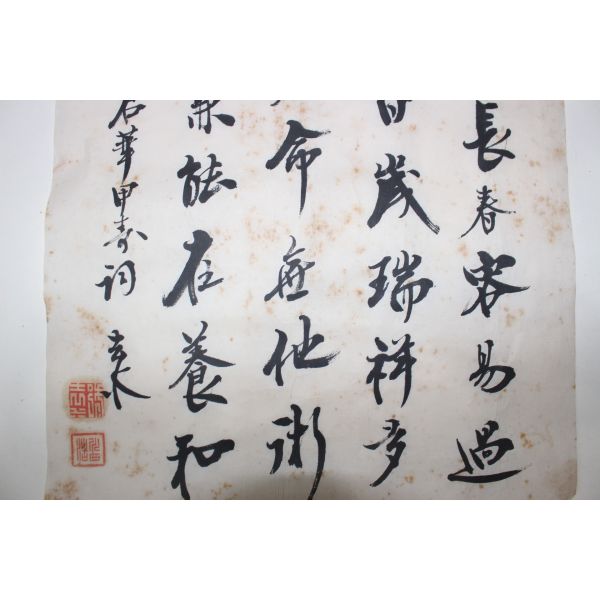 長春容易過
百歲瑞祥多
命無他術
兼能在養和
石華甲壽詞